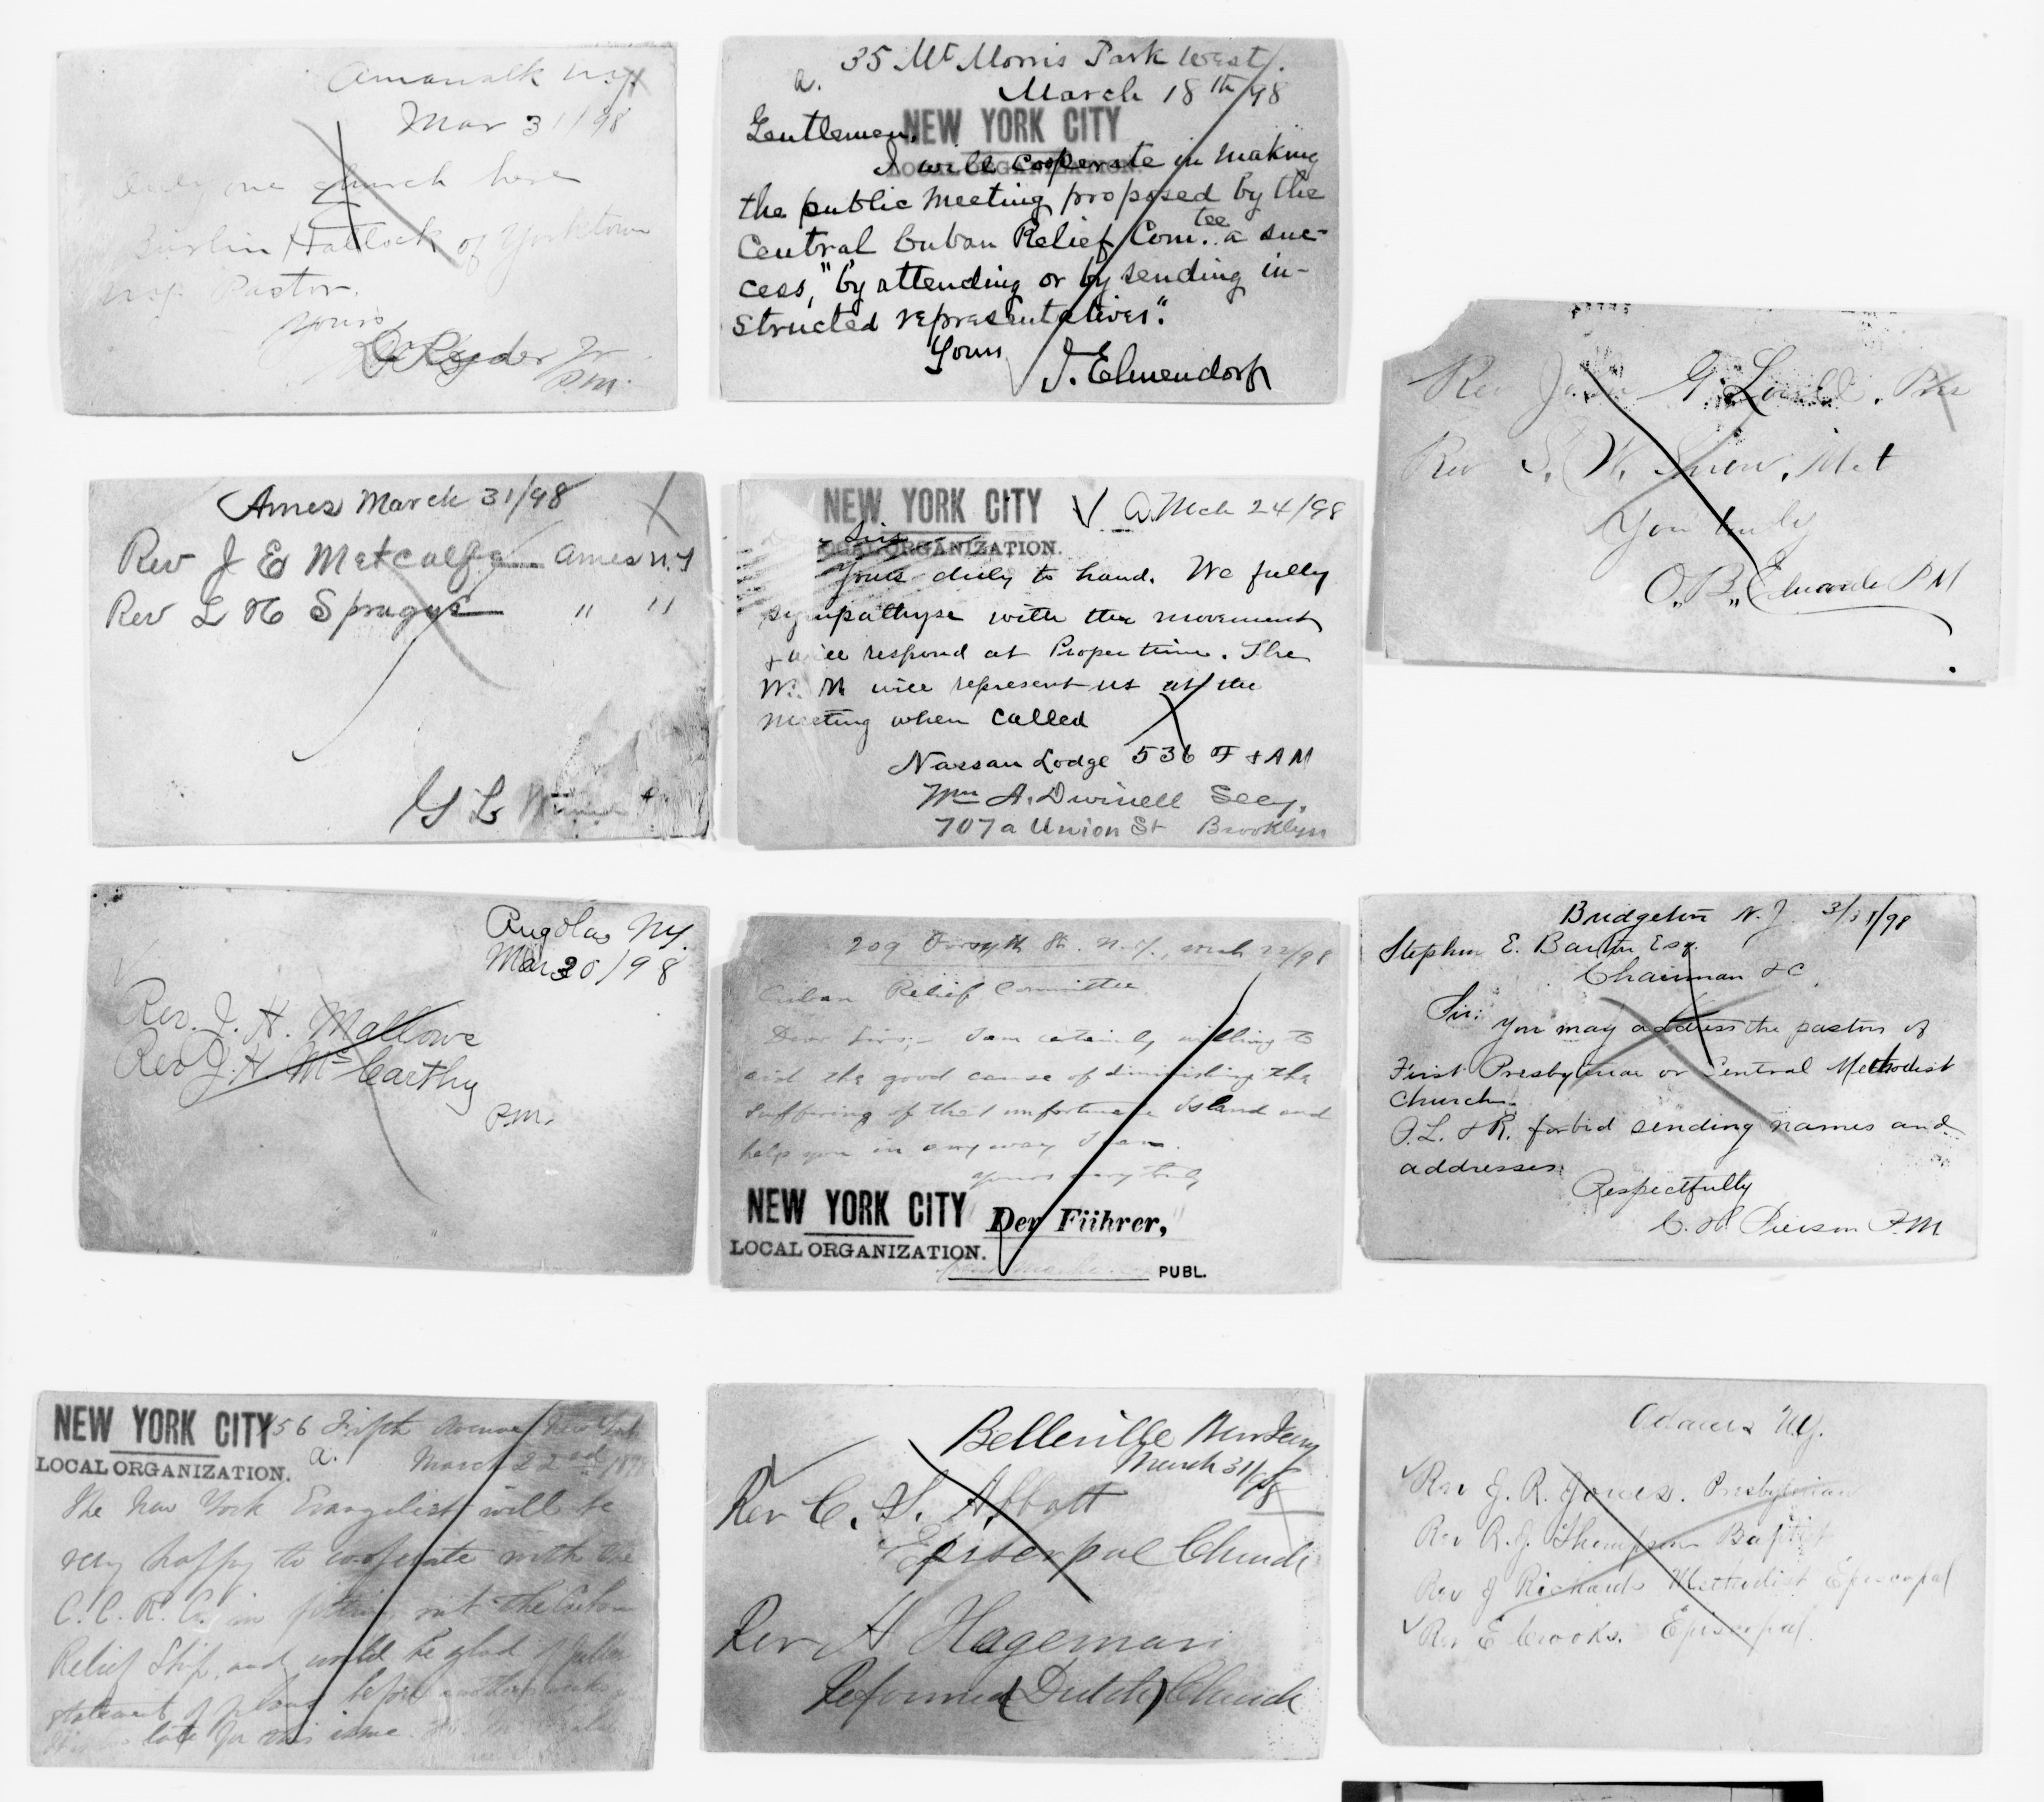 Amawalk
Mar 31/98
Only one church here
Burlin Hallock of Yorktown
Pastor.
Yours
P.M.
35 Mt Morris Park West.
a.
March 18th /98
Gentlemen,
NEW YORK CITY
LOCAL ORGANIZATION.
I will cooperate in making
the public meeting proposed by the
Central Cuban Relief Com.tee a suc-
cess, "by attending or by sending in-
structed representatives".
Yours
J. Elmendorf
Rev G. Pres
Rev S. W. Snow, Met
Yours truly
O. B. Edwards P M
Ames March 31/98
Rev J E Metcalfe Ames N.Y
Rev L H Sprague " "
G L
NEW YORK CITY
a. Mch 24/98
Sirs
LOCAL ORGANIZATION.
Yours duly to hand. We fully
sympathyse with the movement
& will respond at Proper time. The
W. M will represent us at the
meeting when called
Nassau Lodge 536 F & A M
Wm A. Dwinell Secy.
707a Union St Brooklyn
Angola NY.
Mar 30/98
Rev. J. H. Mallows
Rev J. H. McCarthy
P.M.
209 Forsyth St. N.Y., March 22/98
Cuban Relief Committee.
Dear Sirs;- I am certainly willing to
aid the good cause of diminishing the
suffering of that unfortunate Island and
help you in any way I can.
Yours very truly
NEW YORK CITY
Der Führer,
LOCAL ORGANIZATION.
PUBL.
Bridgeton N. J. 3/31/98
Stephen E. Barton Esq.
Chairman &c
Sir:
You may address the pastors of
First Presbyterian or Central Methodist
Church.
P. L. & R. forbid sending names and
addresses.
Respectfully
C. H. Pierson P.M
NEW YORK CITY
156 Fifth Avenue, New York
LOCAL ORGANIZATION.
a.
March 22nd 1898
The New York Evangelist will be
very happy to cooperate with the
C. C. R. C. in fitting out the Cuban
Relief Ship, and would be glad of fuller
statement of plans before another week
late for this issue.
Belleville New Jersey
March 31/98
Rev C. S. Abbott
Episcopal Church
Rev H Hageman
Reformed (Dutch) Church
Adams N.Y.
Rev J. R. Jones. Presbyterian
Rev R. J. Thompson Baptist
Rev J Richards Methodist Episcopal
Rev E Crooks. Episcopal.